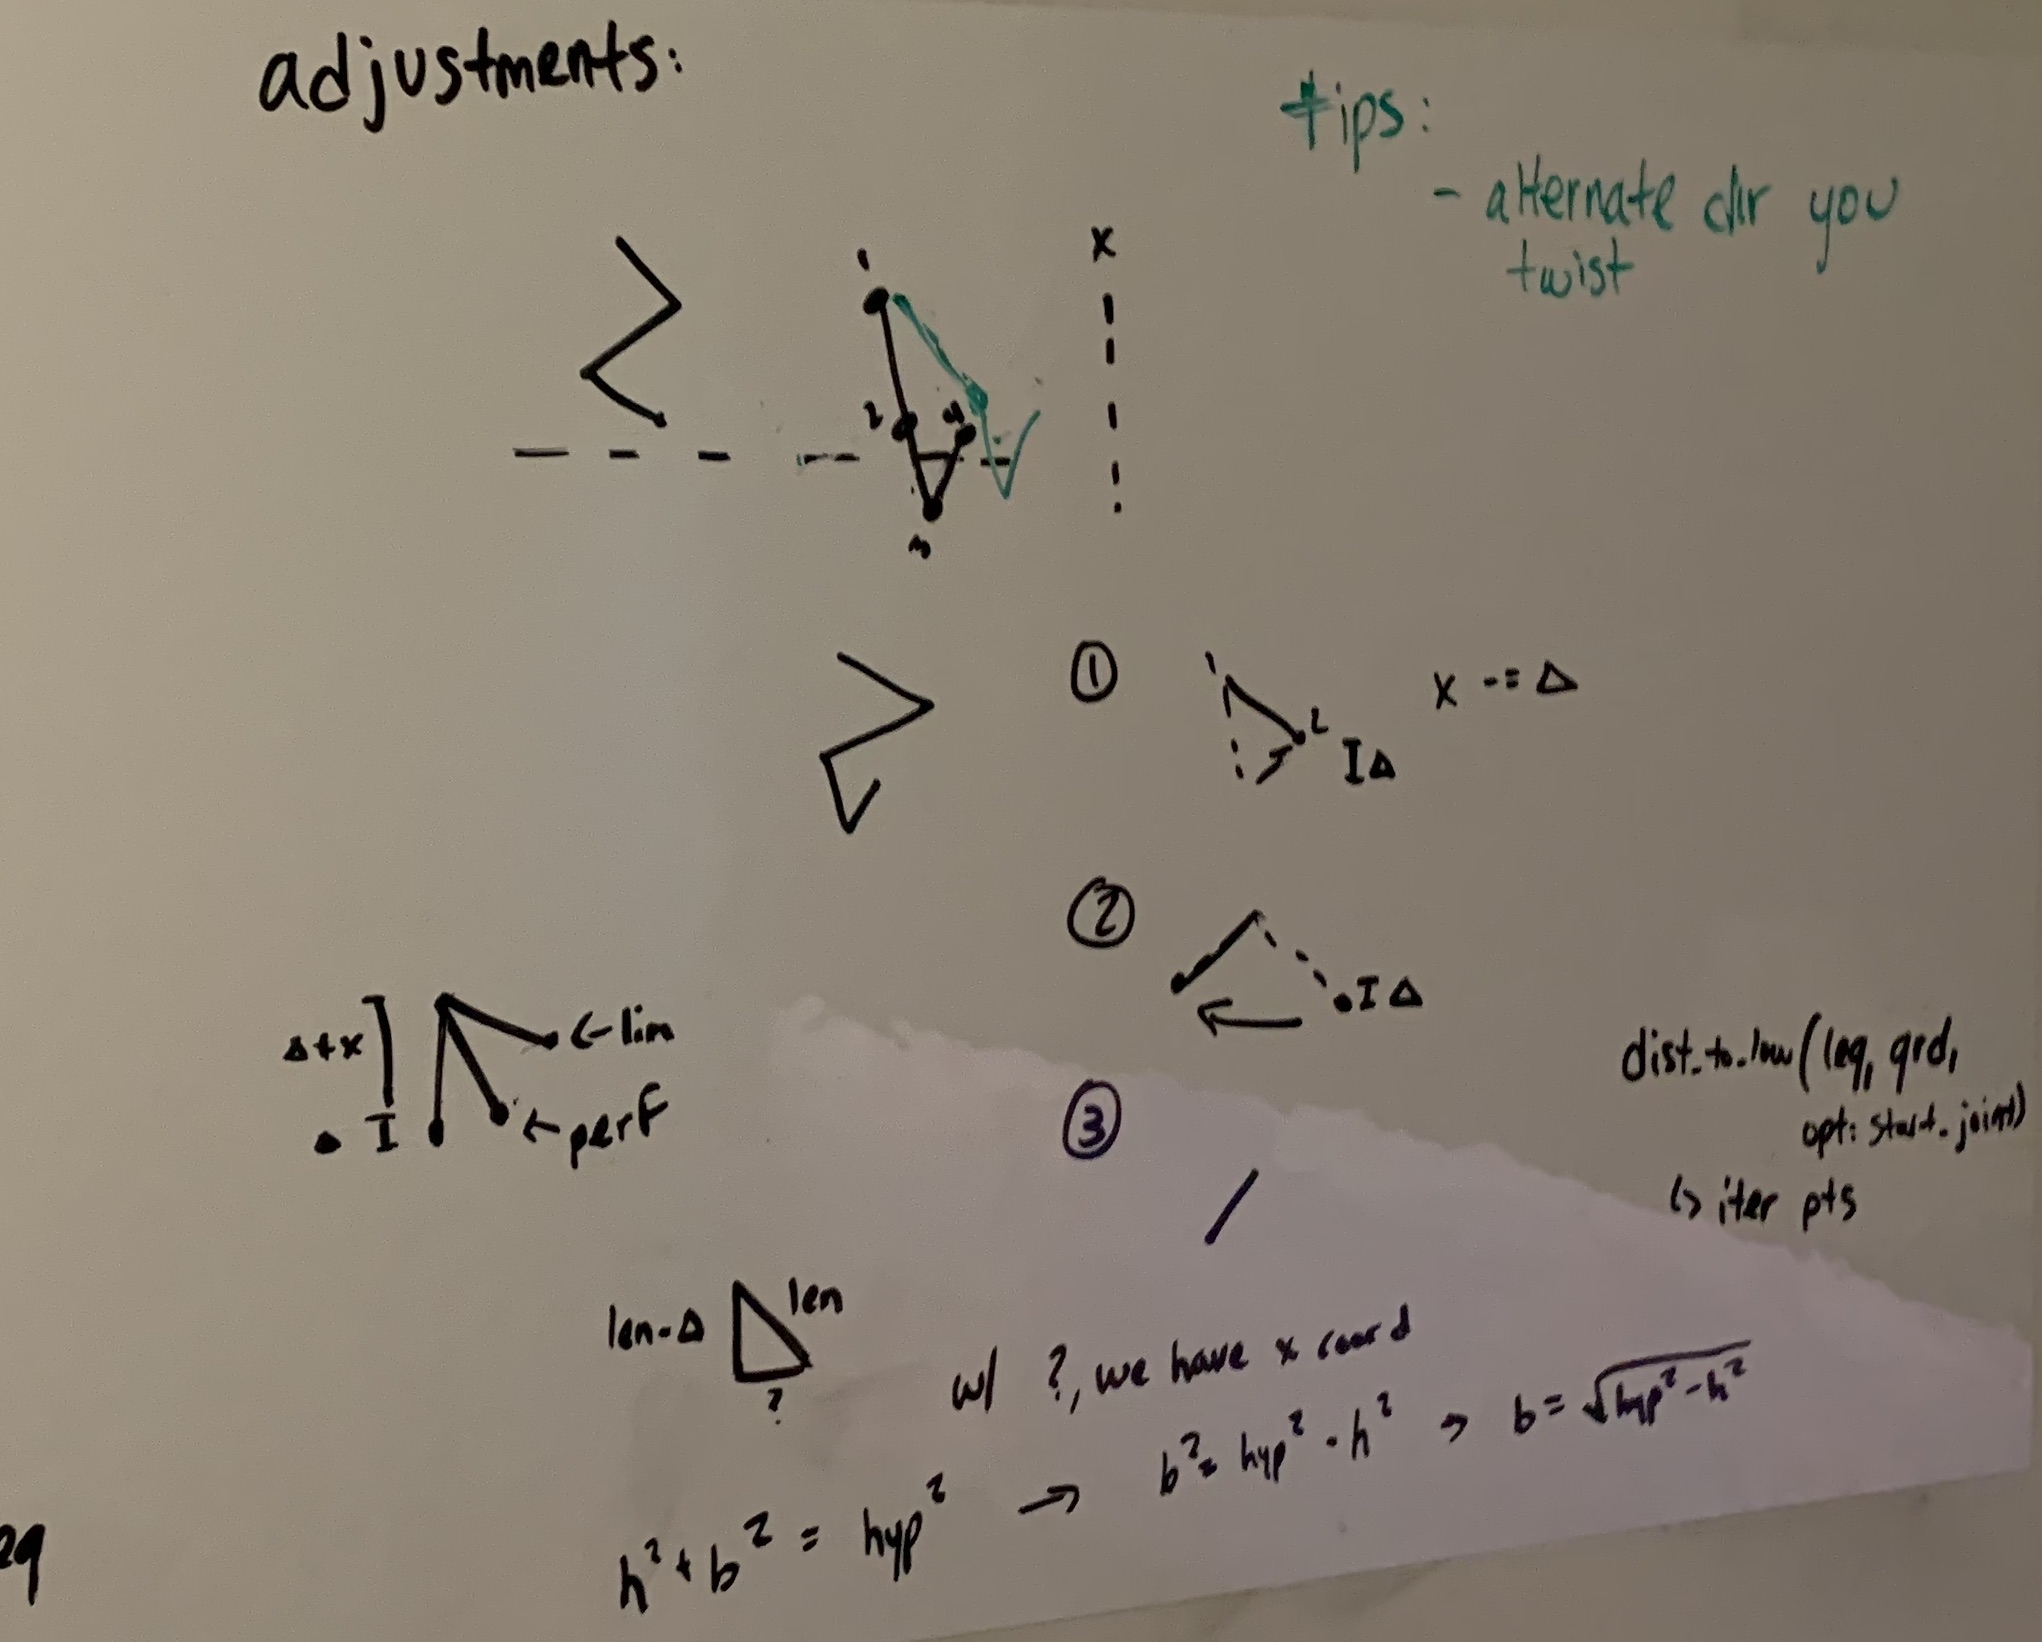 adjustments:
tips:
- alternate dir you
twist
x
1
2
4
3
①
1
2
I Δ
x -= Δ
②
I Δ
Δ+x
I
← lim
← perf
③
dist_to_low(leg, grd,
opt: start_joint)
↳ iter pts
len-Δ
len
?
w/ ?, we have x coord
h² + b² = hyp² → b² = hyp² - h² → b = √hyp² - h²
eg